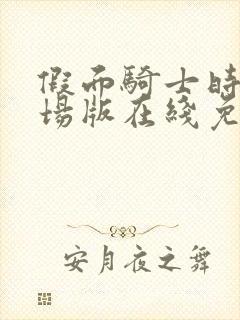 假面騎士時
場版在綫免
安月夜之舞